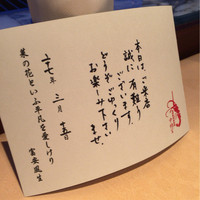 本日はご来店
誠に有難う
ございます。
どうぞごゆっくり
お楽しみ下さい
ませ。
二十七年 三月 十五日
菜の花といふ平凡を愛しけり
富安風生